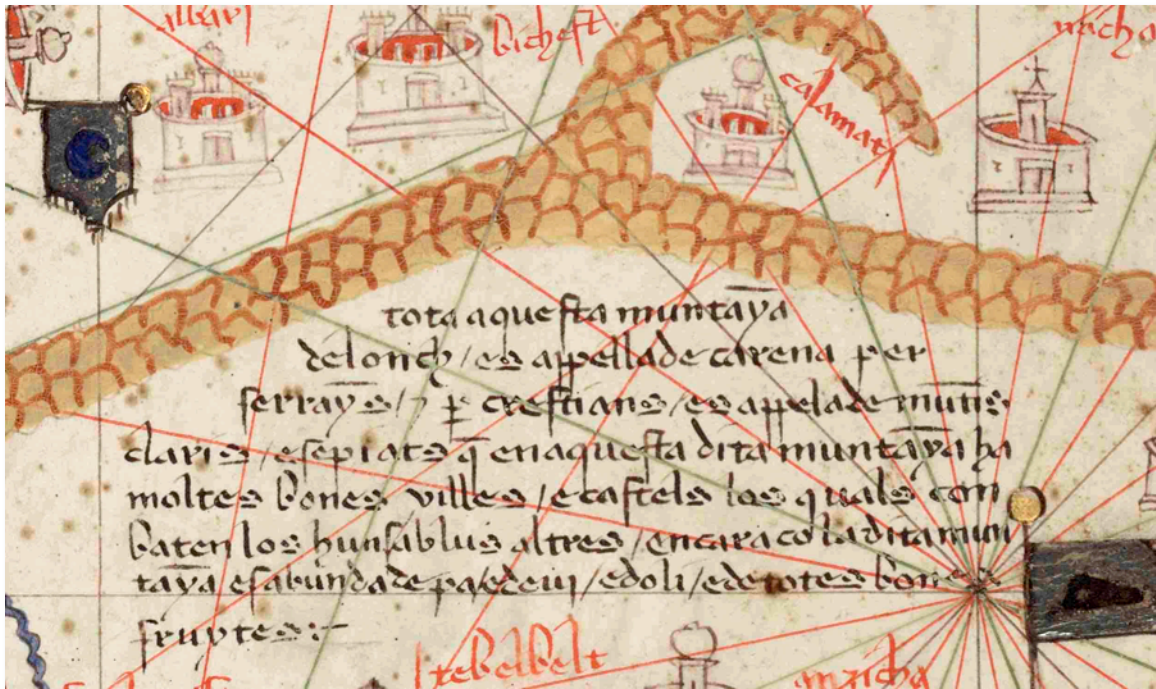 albarj
bicheft
micha
calamat
tota aquesta muntaỹa
de lonch / es appellade carena per
serraỹs / ⁊ ꝑ crestians / es appelade mũtis
claris / e sepiats q̃ en aquesta dita muntaỹa ha
moltes bones villes / e castels los quals con
baten los huns ab lus altres / encara co la dita mun
taỹa es abũndade de pa / e de vi / e doli / e de totes bones
fruytes :~
tebelbelt